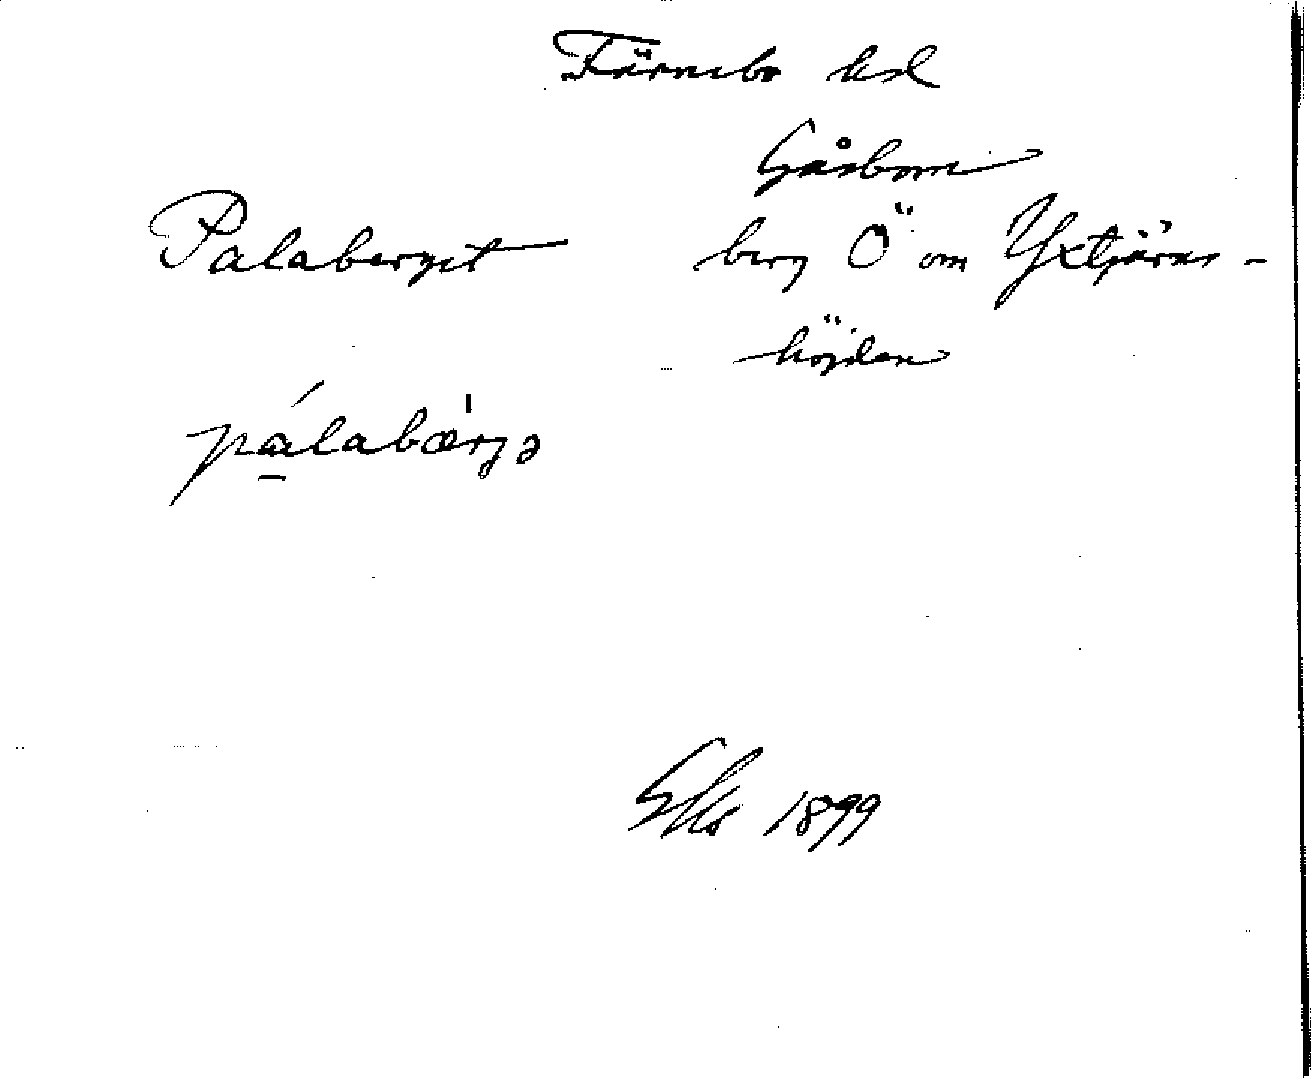 Färnebo hd
Gåsborn
Palaberget berg Ö om Yxtjärns-
höjden
pálabærjə
1899